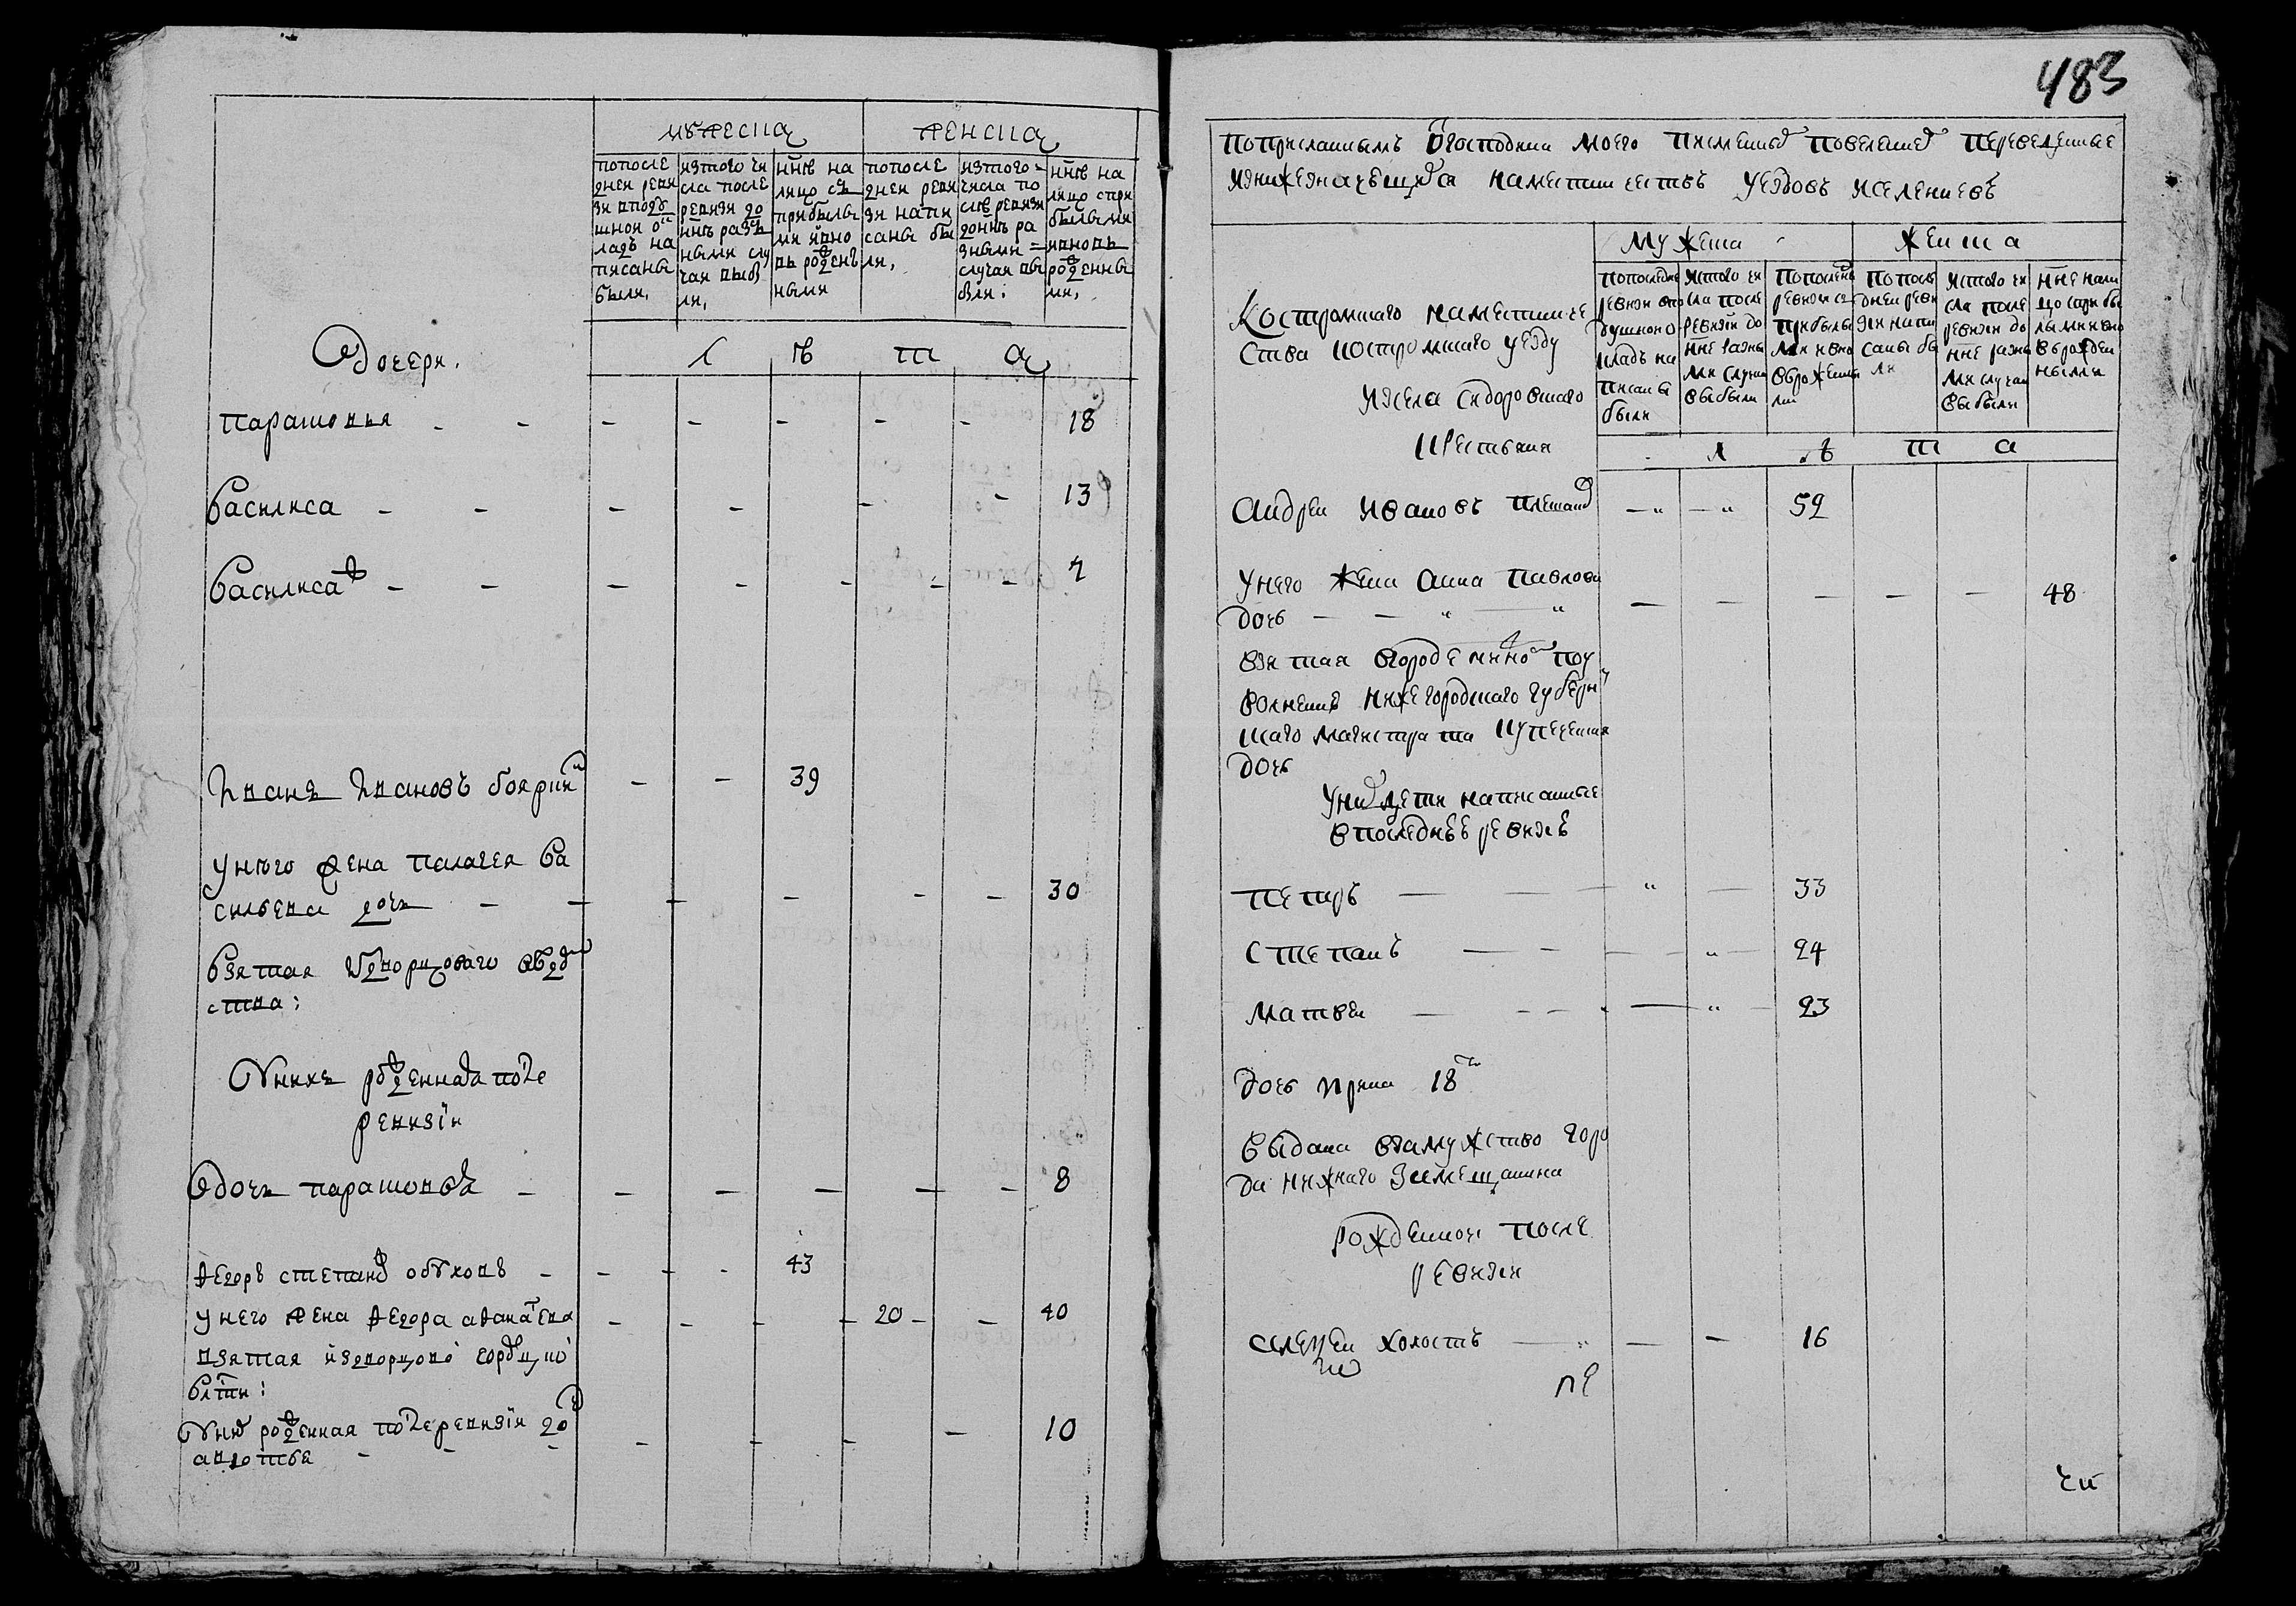 мужеска женска
попосле
дней реви
зи вподу
шной о
ладъ на
писаны
были,
изтого чи
сла после
ревизи до
ннѣ разъ
ными слу
чаи выб
ли,
ннѣ на
лицо съ
прибылы
ми ивно
вь рожденъ
ными
попосле
дней реви
зи напи
саны бы
ли,
изтого
числа по
слѣ ревизи
доннѣ ра
зными
случаи вы
бли:
ннѣ на
лицо спри
былыми
ивновь
рожденны
ми,
лѣта
Одочери.
парасковья - - - - - - - 18
Василиса - - - - - - 13
Василиса ж - - - - - - - 7
Иванъ Ивановъ бояркин - - 39
унѣго жена пелагея Ва
сильева дочь - - - - - - 30
взятая
ства:
Уникъ рожденная посде
ревизiи
Одочь парасковья - - - - - - 8
Ѳедоръ степанов обуховъ - - - - 43
унего жена Ѳедора аѳанасева - - - - 20 - - 40
взятая издворцовой
влсти:
Уних рожденная после ревизiи до
авдотья - - - - - - - 10
483
Поприсланнымъ отгосподина моего писменным повеленiем переведенные
изнижезначущихся наместничествъ уездовъ иселениевъ
мужеска женска
Попоследне
ревизи впо
душном о
кладъ на
писаны
были
Истого чи
сла после
ревизiи до
нне разны
ми случаи
выбыли
Попоследне
ревизи со
прибылы
ми ивно
врожденны
ми
Попосле
дней реви
зiи напи
саны бы
ли
Истого чи
сла после
ревизiи до
нне разны
ми случаи
выбыли
нне нали
цо спри бы
лыми ивно
врожден
ными
лѣта
Костромскаго наместниче
ства костромскаго уезду
Изсела сидоровскаго
крестьяня
Андреи Ивановъ плешанов — — 59
Унего жена Анна Павлова
дочь — — — — — — — 48
взятая вгороде нижнем поу
волнению нижегородскаго губерн
скаго магистрата купеческая
дочь
Уних дети написанные
впоследнѣе ревизiѣ
Петръ — — — — — 33
Степанъ — — — — — 24
Матвеи — — — — — 23
дочь Ирина 18
выдана взамужство горо
да нижнаго замещанина
рожденной после
ревизiи
Алексеи холостъ — — — 16